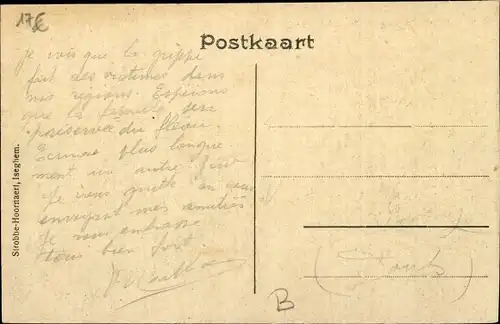 17€
Postkaart
je vois que la grippe
fait des victimes dans
nos régions. Espérons
que la famille sera
préservée du fléau.
plus longue
ment un autre jour
Je vous quitte en vous
envoyant mes amitiés
Je vous embrasse
tous bien fort.
Strobbe-Hoornaert, Iseghem.
B